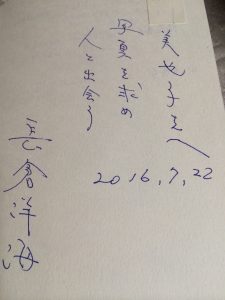 美也子さんへ
写真を求め
人と出会う
2016,7,22
長倉洋海